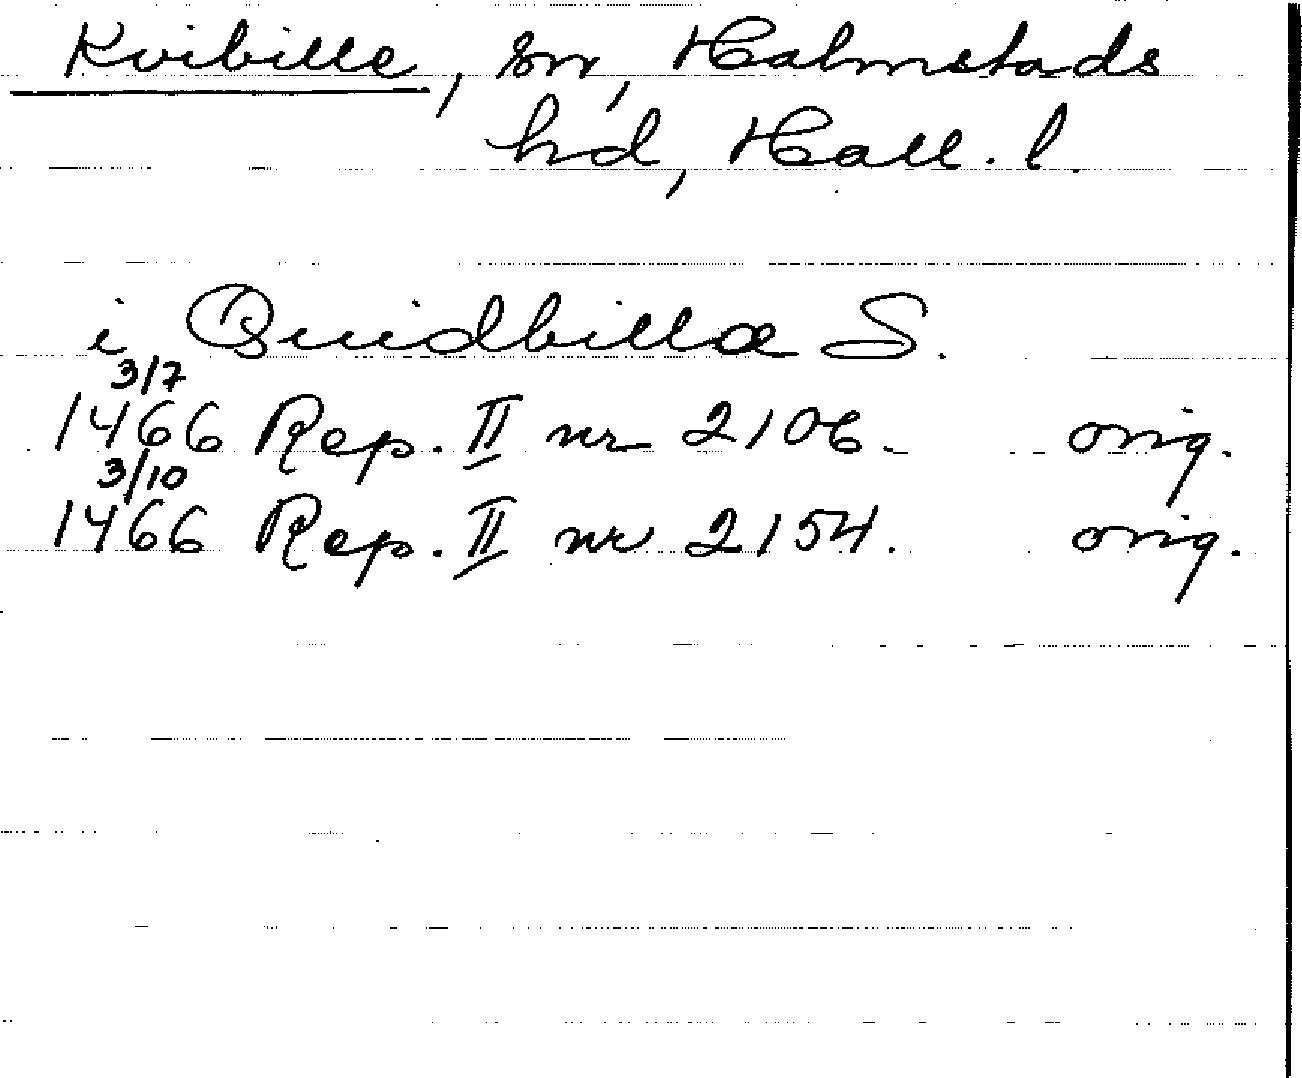 Kvibille, sn, Halmstads
hd, Hall. l.
i Quidbillæ S.
3/7
1466 Rep. II nr 2106. orig.
3/10
1466 Rep. II nr 2154. orig.